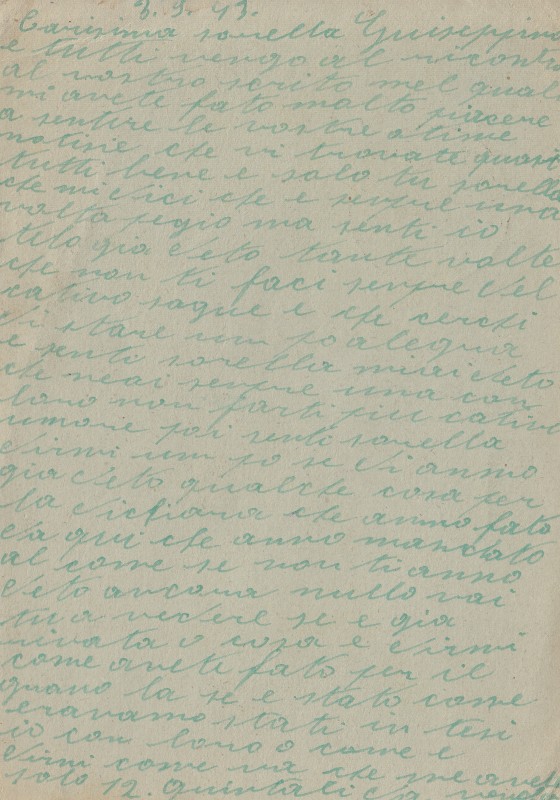 3.9.43.
Carisima sorella Giuseppina
e tutti vengo al ricontro
al vostro scrito nel quale
mi avete fato molto piacere
a sentire le vostre otime
notisie che vi trovate quasi
tutti bene e solo tu sorella
che mi dici che e senpre una
volta pegio ma senti io
telo gia deto tante volte
che non ti faci senpre del
cativo sague e che cerchi
di stare un po alegra
e senti sorella mi ai deto
che neai senpre una con
loro non farti piu cativo
umore poi senti sorella
dirmi un po se vi anno
gia deto qualche cosa per
la dichiara che anno fato
da qui che anno mandato
al come se non ti anno
deto ancora nullo vai
tu a vedere se e gia
rivata o cosa e dirmi
come avete fato per il
grano la se e stato come
eravamo stati in tesi
io con loro o come e
dirmi come va che me avete
solo 12. quintali da